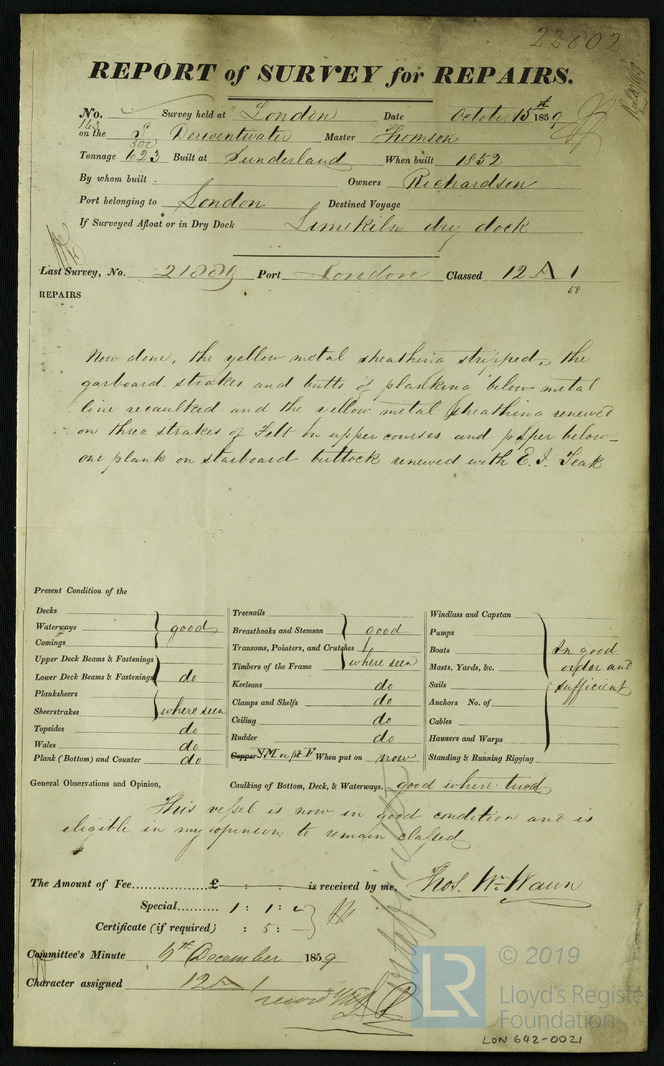 22802
REPORT of SURVEY for REPAIRS.
No. Survey held at London Date October 15th 1859
on the S Derwentwater Master Thomson
Tonnage 623 Built at Sunderland When built 1852
By whom built Owners Richardson
Port belonging to London Destined Voyage
If Surveyed Afloat or in Dry Dock Limekiln dry dock
Last Survey, No. 21889 Port London Classed 12 A 1
58
REPAIRS
Now done, the yellow metal sheathing stripped, the
garboard strakes and butts of planking below metal
line recaulked and the yellow metal sheathing renewed
on three strakes of Felt on upper courses and paper below—
one plank on starboard buttock renewed with E. I. Teak
Present Condition of the
Decks
Waterways good
Comings
Upper Deck Beams & Fastenings
Lower Deck Beams & Fastenings do
Planksheers
Sheerstrakes where seen
Topsides do
Wales do
Plank (Bottom) and Counter do
Treenails
Breasthooks and Stemson good
Transoms, Pointers, and Crutches
Timbers of the Frame where seen
Keelsons do
Clamps and Shelfs do
Ceiling do
Rudder do
Copper YM on pt F When put on now
Windlass and Capstan
Pumps
Boats In good
Masts, Yards, &c. order and
Sails sufficient
Anchors No. of
Cables
Hawsers and Warps
Standing & Running Rigging
General Observations and Opinion, Caulking of Bottom, Deck, & Waterways. good where tried
This vessel is now in good condition and is
eligible in my opinion to remain classed
The Amount of Fee £ : : is received by me, Thos. Wm. Wawn
Special 1 : 1 :
Certificate (if required) : 5 :
Committee's Minute 6th December 1859
Character assigned 12 A 1
LR
© 2019
Lloyd's Register
Foundation
LON 642-0021